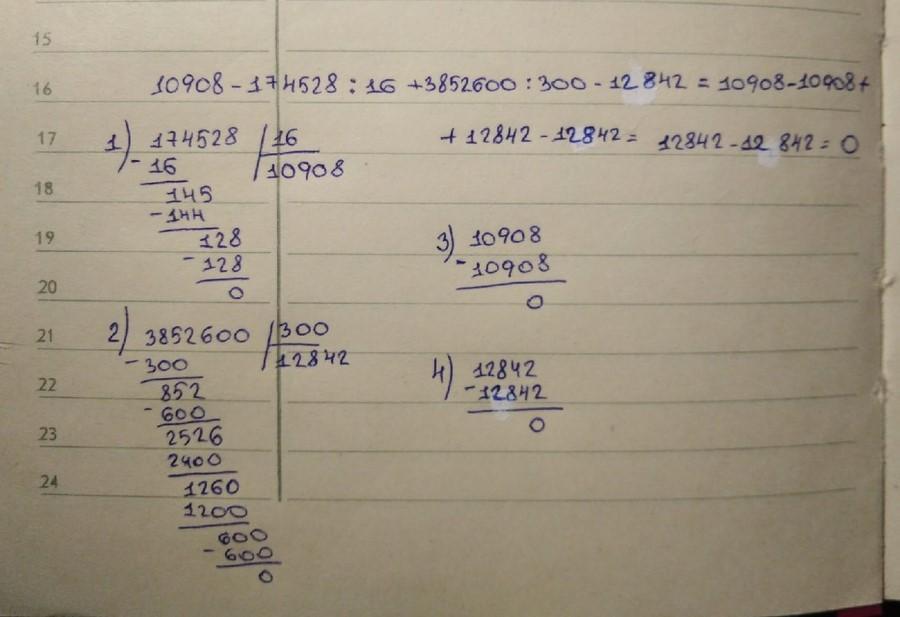 15
16
10908 - 174528 : 16 + 3852600 : 300 - 12842 = 10908 - 10908 +
+ 12842 - 12842 = 12842 - 12842 = 0
17
1) 174528 | 16
- 16 10908
18
145
- 144
19
128
- 128
20
0
21
2) 3852600 | 300
- 300 12842
22
852
- 600
23
2526
2400
24
1260
1200
600
- 600
0
3) 10908
- 10908
0
4) 12842
- 12842
0